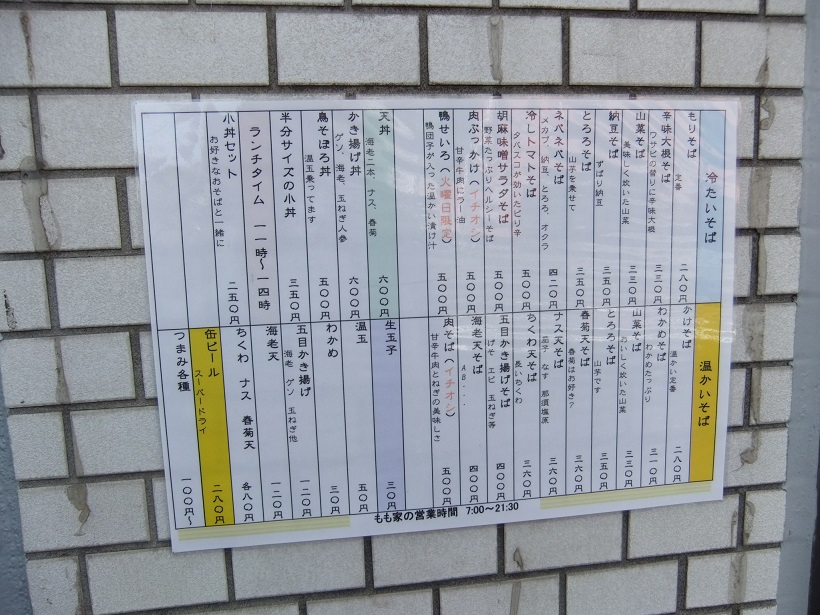 冷たいそば
もりそば
定番
二八〇円
辛味大根そば
ワサビの替りに辛味大根
三三〇円
山菜そば
美味しく炊いた山菜
三三〇円
納豆そば
ずばり納豆
三五〇円
とろろそば
山芋を乗せて
三五〇円
ネバネバそば
メカブ、納豆、とろろ、オクラ
四二〇円
冷しトマトそば
タバスコが効いたピリ辛
五〇〇円
胡麻味噌サラダそば
野菜たっぷりヘルシーそば
五〇〇円
肉ぶっかけ（イチオシ）
甘辛牛肉にラー油
五〇〇円
鴨せいろ（火曜日限定）
鴨団子が入った温かい漬け汁
五〇〇円
天丼
海老二本、ナス、春菊
六〇〇円
かき揚げ丼
ゲソ、海老、玉ねぎ人参
六〇〇円
鳥そぼろ丼
温玉乗ってます
五〇〇円
半分サイズの小丼
三五〇円
ランチタイム　一一時～一四時
小丼セット
お好きなおそばと一緒に
二五〇円
温かいそば
かけそば
温かい定番
二八〇円
わかめそば
わかめたっぷり
三一〇円
山菜そば
おいしく炊いた山菜
三三〇円
とろろそば
山芋です
三五〇円
春菊天そば
春菊はお好き？
三六〇円
ナス天そば
茄子　なす　那須塩原
三六〇円
ちくわ天そば
長いちくわ
三六〇円
五目かき揚げそば
げそ　エビ　玉ねぎ等
四〇〇円
海老天そば
四〇〇円
肉そば（イチオシ）
甘辛牛肉とねぎの美味しさ
五〇〇円
生玉子
三〇円
温玉
五〇円
わかめ
三〇円
五目かき揚げ
海老　ゲソ　玉ねぎ他
一二〇円
海老天
一二〇円
ちくわ　ナス　春菊天
各八〇円
缶ビール
スーパードライ
二八〇円
つまみ各種
一〇〇円～
もも家の営業時間　7:00～21:30